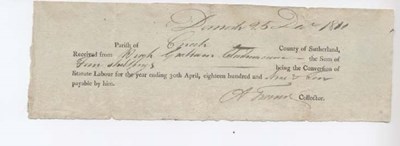 Parish of Creich County of Sutherland,
Received from Hugh the Sum of
Four shillings being the Conversion of
Statute Labour for the year ending 30th April, eighteen hundred and
payable by him.
Collector.